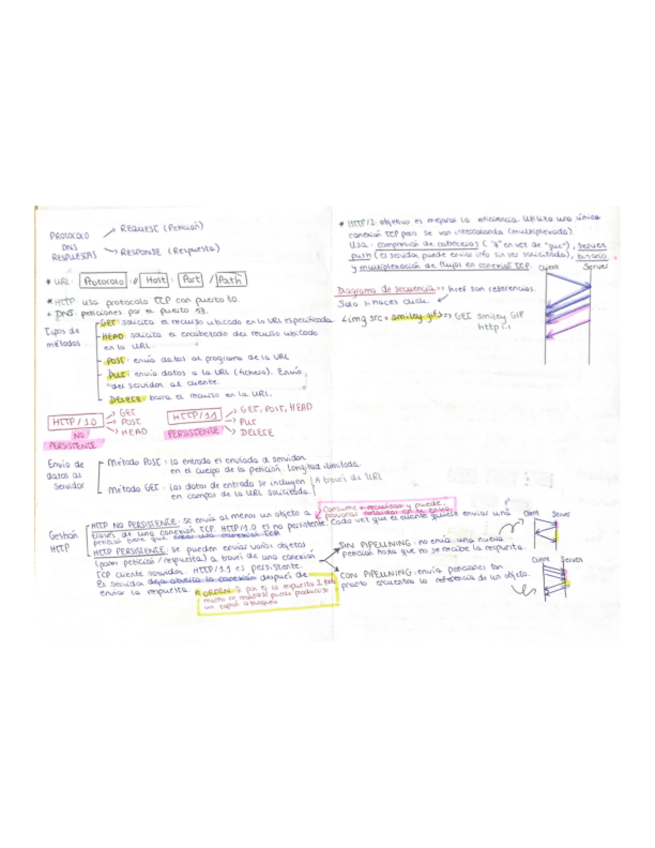 PROTOCOLO DNS RESPUESTAS
REQUEST (Petición)
RESPONSE (Respuesta)
* URL: Protocolo :// Host : Port / Path
* HTTP usa protocolo TCP con puerto 80.
+ DNS: peticiones por el puerto 53.
Tipos de métodos
- GET: solicita el recurso ubicado en la URL especificada
- HEAD: solicita el encabezado del recurso ubicado
en la URL.
- POST: envía datos al programa de la URL
- PUT: envía datos a la URL (fichero). Envío
del servidor al cliente.
- DELETE: borra el recurso en la URL.
HTTP/1.0
NO PERSISTENTE
GET
POST
HEAD
HTTP/1.1
PERSISTENTE
GET, POST, HEAD
PUT
DELETE
Envío de datos al servidor
Método POST: la entrada es enviada al servidor
en el cuerpo de la petición. Longitud ilimitada.
Método GET: los datos de entrada se incluyen
en campos de la URL solicitada.
A través de URL
Gestión HTTP
HTTP NO PERSISTENCE: se envía al menos un objeto a
través de una conexión TCP. HTTP/1.0 es no persistente. Cada vez que el cliente quiere enviar una
petición tiene que
Consume + recursos y puede
provocar
HTTP PERSISTENCE: se pueden enviar varios objetos
(pares petición/respuesta) a través de una conexión
TCP cliente servidor. HTTP/1.1 es persistente.
El servidor deja abierta la conexión después de
enviar la respuesta.
* ORDEN: si por ej la respuesta 2
SIN PIPELINING: no envía una nueva
petición hasta que no se recibe la respuesta.
CON PIPELINING: envía peticiones tan
pronto encuentra la referencia de un objeto.
* HTTP/2: objetivo es mejorar la eficiencia. Utiliza una única
conexión TCP pero se van intercalando (multiplexado).
Usa: compresión de cabeceras ( en vez de ), server
push (el servidor puede enviar info sin ser solicitada), binario
y multiplexación de flujos en conexión TCP.
Diagrama de secuencia => href son referencias.
Solo si haces click.
<img src = smiley.gif> => GET smiley GIF
Client Server
Client Server
Client Server